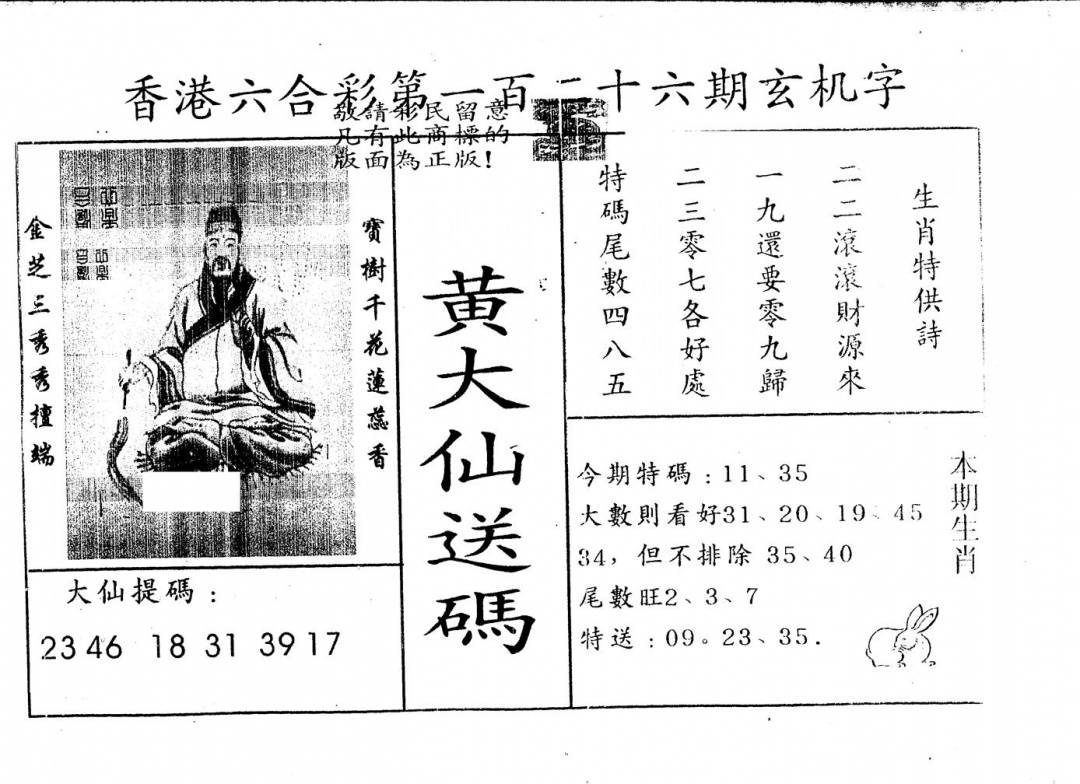 香港六合彩第一百二十六期玄机字
敬請彩民留意
凡有此商標的
版面為正版!
寶樹千花蓮蕊香
金芝三秀秀擅端
大仙提碼：
23 46 18 31 39 17
黄大仙送碼
生肖特供詩
二二滾滾財源來
一九還要零九歸
二三零七各好處
特碼尾數四八五
本期生肖
今期特碼：11、35
大數則看好31、20、19、45
34，但不排除 35、40
尾數旺2、3、7
特送：09。23、35.